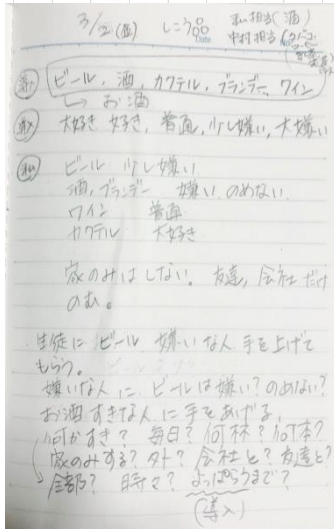 3/2(金) し〜300 私担当(酒)
Date 中村担当(タバコ・コーヒー
(導1) ビール, 酒, カクテル, ブランデー, ワイン
→ お酒
(導2) 大好き 好き, 普通, 少し嫌い, 大嫌い
(私) ビール 少し嫌い
酒, ブランデー 嫌い のめない
ワイン 普通
カクテル 大好き
家のみはしない。 友達, 会社だけ
のむ。
生徒に ビール 嫌いな人 手を上げて
もらう。
嫌いな人に ビールは嫌い?のめない?
お酒すきな人に手をあげる,
何がすき? 毎日? 何杯? 何本?
家のみする? 外? 会社と? 友達と?
全部? 時々? よっぱらうまで?
(導入)